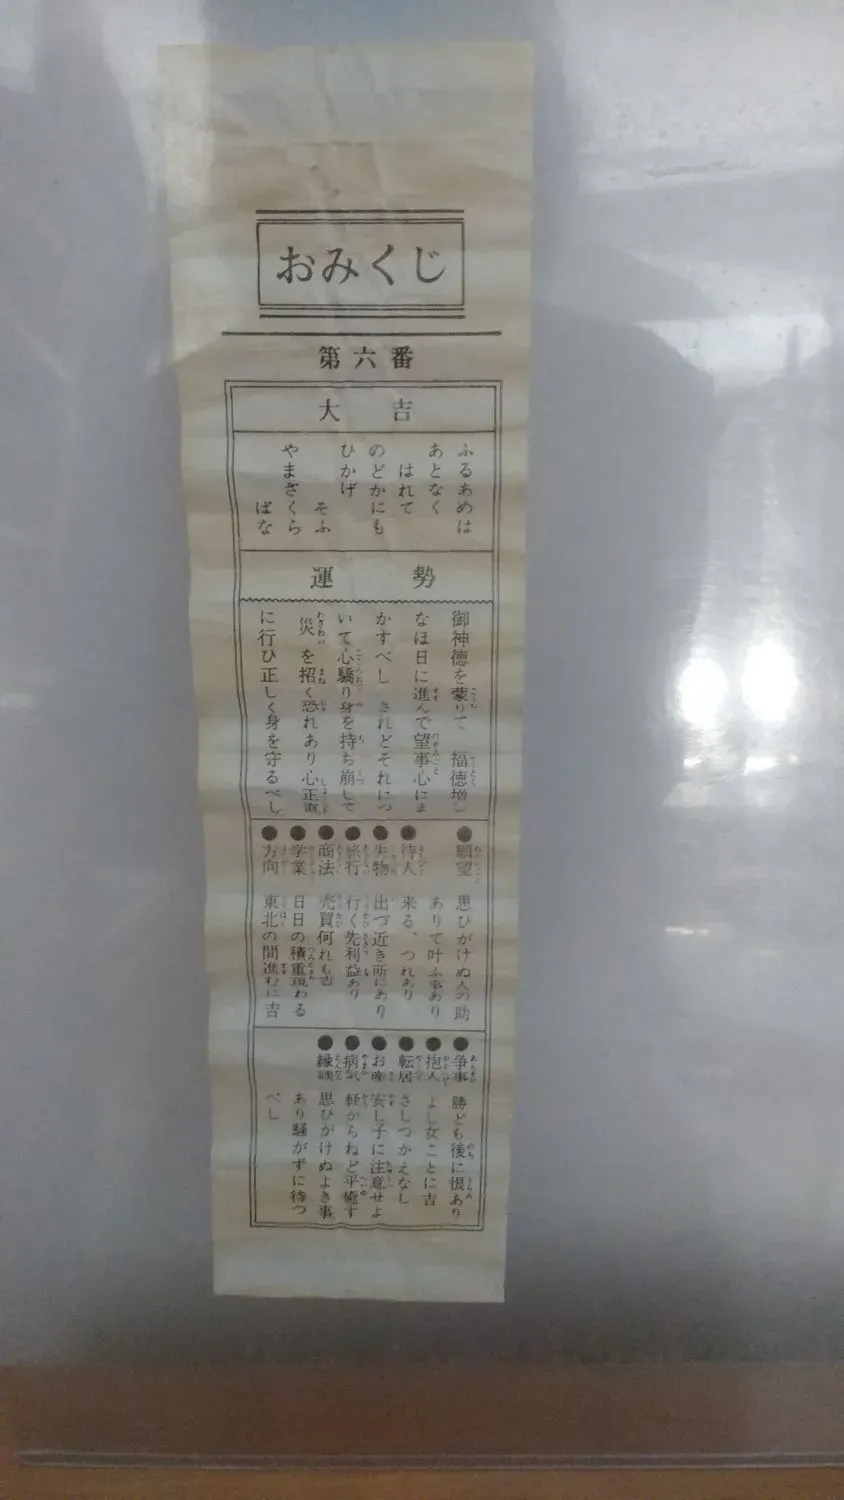 おみくじ
第六番
大吉
ふるあめは
あとなく
はれて
のどかにも
ひかげ
そふ
やまざくら
ばな
運勢
御神徳を蒙りて 福徳増し
なほ日に進んで望事心にま
かすべし されどそれにつ
いて心驕り身を持ち崩して
災を招く恐れあり心正直
に行ひ正しく身を守るべし
●願望 思ひがけぬ人の助
ありて叶ふ事あり
●待人 来る、つれあり
●失物 出づ近き所にあり
●旅行 行く先利益あり
●商法 売買何れも吉
●学業 日日の積重現わる
●方向 東北の間進むに吉
●争事 勝ども後に恨あり
●抱人 よし女ことに吉
●転居 さしつかえなし
●お産 安し子に注意せよ
●病気 軽からねど平癒す
●縁談 思ひがけぬよき事
あり騒がずに待つ
べし